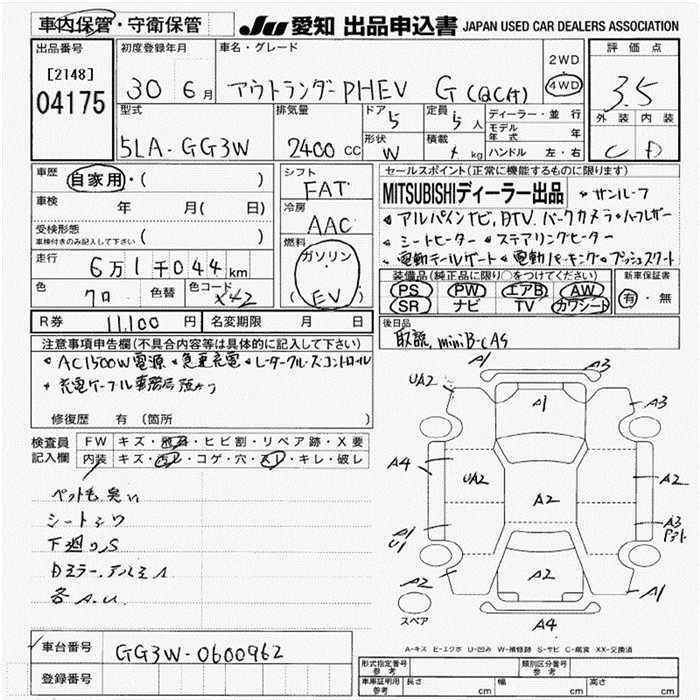 車内保管・守衛保管 JU 愛知 出品申込書 JAPAN USED CAR DEALERS ASSOCIATION
出品番号 初度登録年月 車名・グレード 2WD 4WD 評価点
[2148] 04175 30 6月 アウトランダーPHEV G 3.5
型式 排気量 ドア 5 定員 5人 ディーラー・並行 外装 内装
モデル年式 年
5LA-GG3W 2400CC 形状 W 積載 kg ハンドル 左・右 C D
車歴 自家用・( ) シフト FAT セールスポイント(正常に機能するものに限ります)
車検 年 月( 日) 冷房 AAC MITSUBISHIディーラー出品 サンルーフ
受検形態 アルパインナビ,DTV,バックカメラ
車検付きのみ記入して下さい ( ) 燃料 ガソリン EV シートヒーター ステアリングヒーター
走行 6万1千044km 電動テールゲート 電動パーキング プッシュスタート
色 クロ 色替 色コード X42 装備品(純正品に限り○をつけてください) 新車保証書
PS PW エアB AW 有・無
SR ナビ TV カワシート
R券 11,100円 名変期限 月 日 後日品
取説, miniB-CAS
注意事項申告欄(不具合内容等は具体的に記入して下さい)
AC1500W電源 急速充電 レーダークルーズコントロール
充電ケーブル事務局預かり
修復歴 有(箇所 )
検査員記入欄 FW キズ・飛石・ヒビ割・リペア跡・X要
内装 キズ・汚レ・コゲ・穴・スレ・キレ・破レ
ペット毛 臭い
シートシワ
下廻りS
各A.U
A1 A3
UA2 A1 A3
A4 UA2 A2 A2
A1 U1 A3
A2 A2 A1
スペア A4
A-キズ E-エクボ U-凹み W-補修跡 S-サビ C-腐食 XX-交換済
車台番号 GG3W-0600962
登録番号
形式指定番号 参考 類別区分番号 参考
車庫証明用 参考 長さ cm 幅 cm 高さ cm